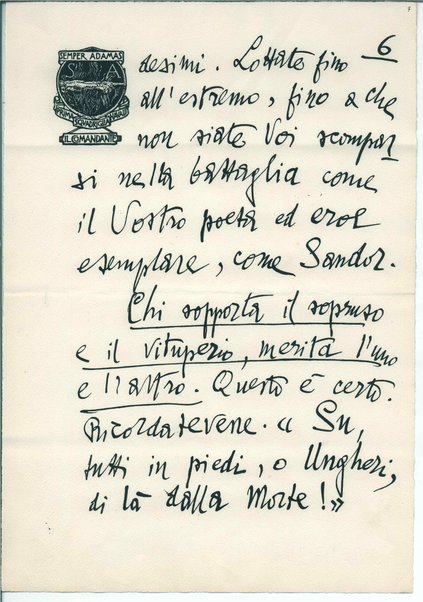 7
6
SEMPER ADAMAS
S A
IL COMANDANTE
desimi. Lottate fino
all'estremo, fino a che
non siate Voi scompar
si nella battaglia come
il Vostro poeta ed eroe
esemplare, come Sandor.
Chi sopporta il sopruso
e il vituperio, merita l'uno
e l'altro. Questo è certo.
Ricordatevene. « Su,
tutti in piedi, o Ungheri,
di là dalla Morte! »